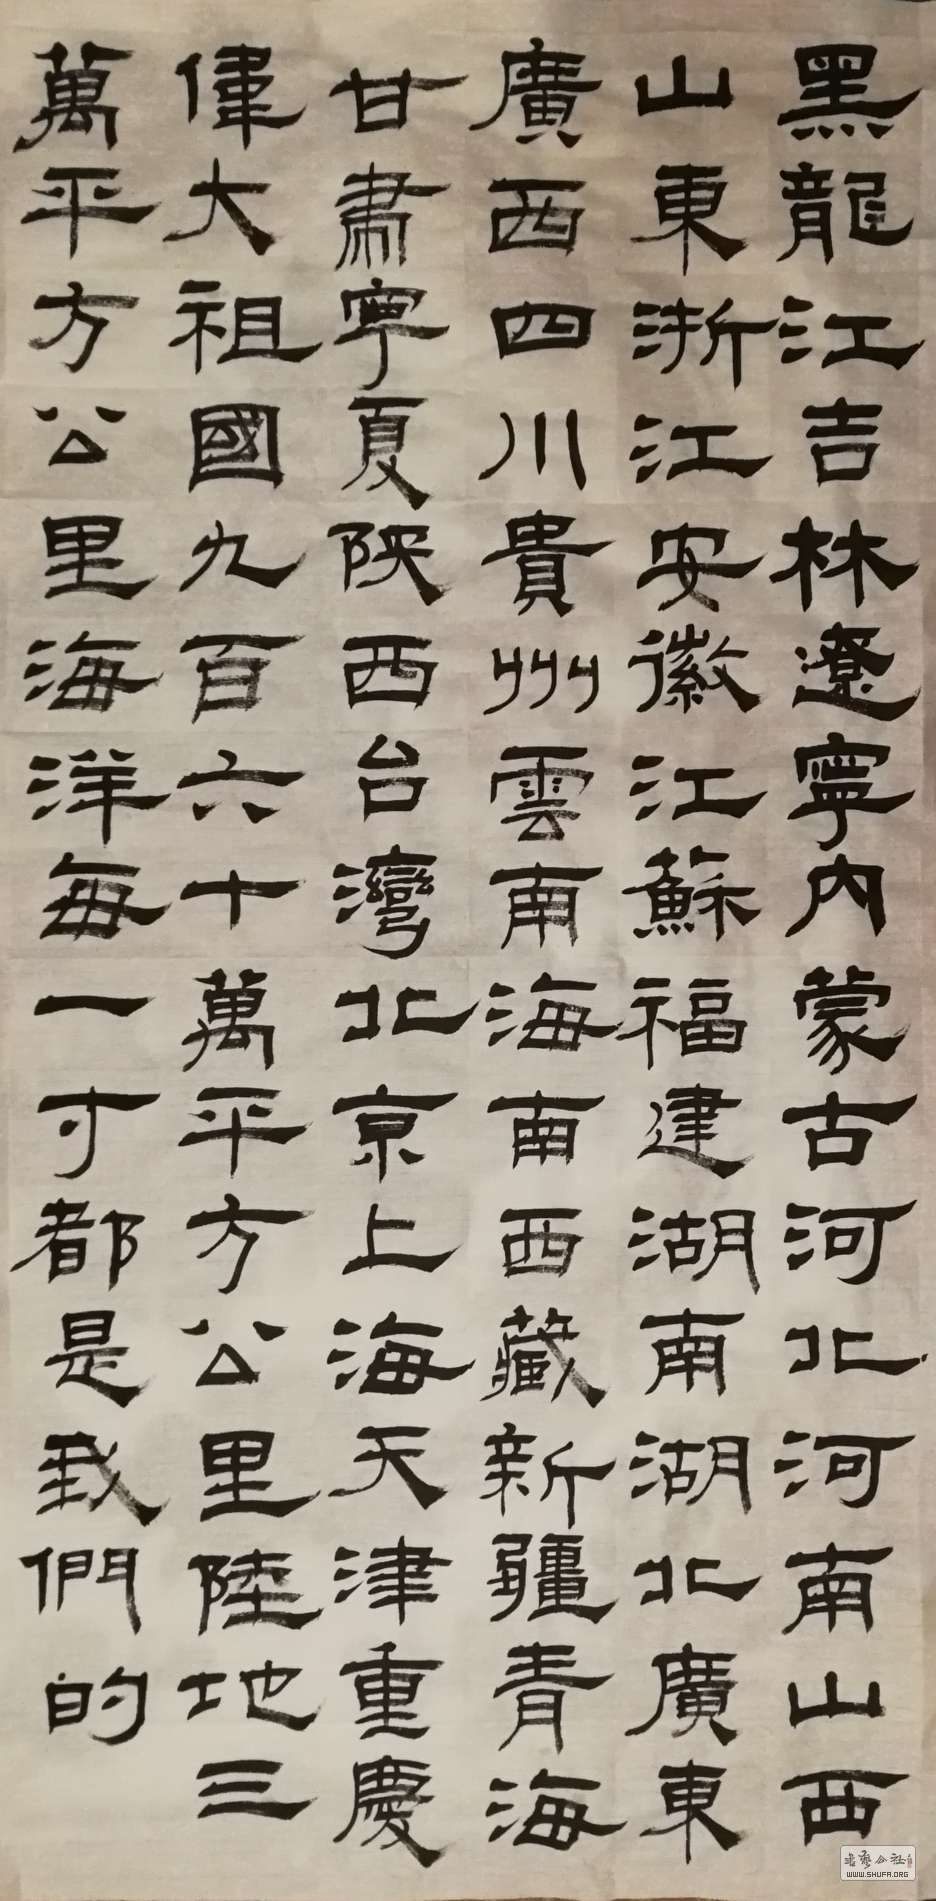 黑龍江吉林遼寧內蒙古河北河南山西
山東浙江安徽江蘇福建湖南湖北廣東
廣西四川貴州雲南海南西藏新疆青海
甘肅寧夏陝西台灣北京上海天津重慶
偉大祖國九百六十萬平方公里陸地三
萬平方公里海洋每一寸都是我們的
WWW.SHUFA.ORG